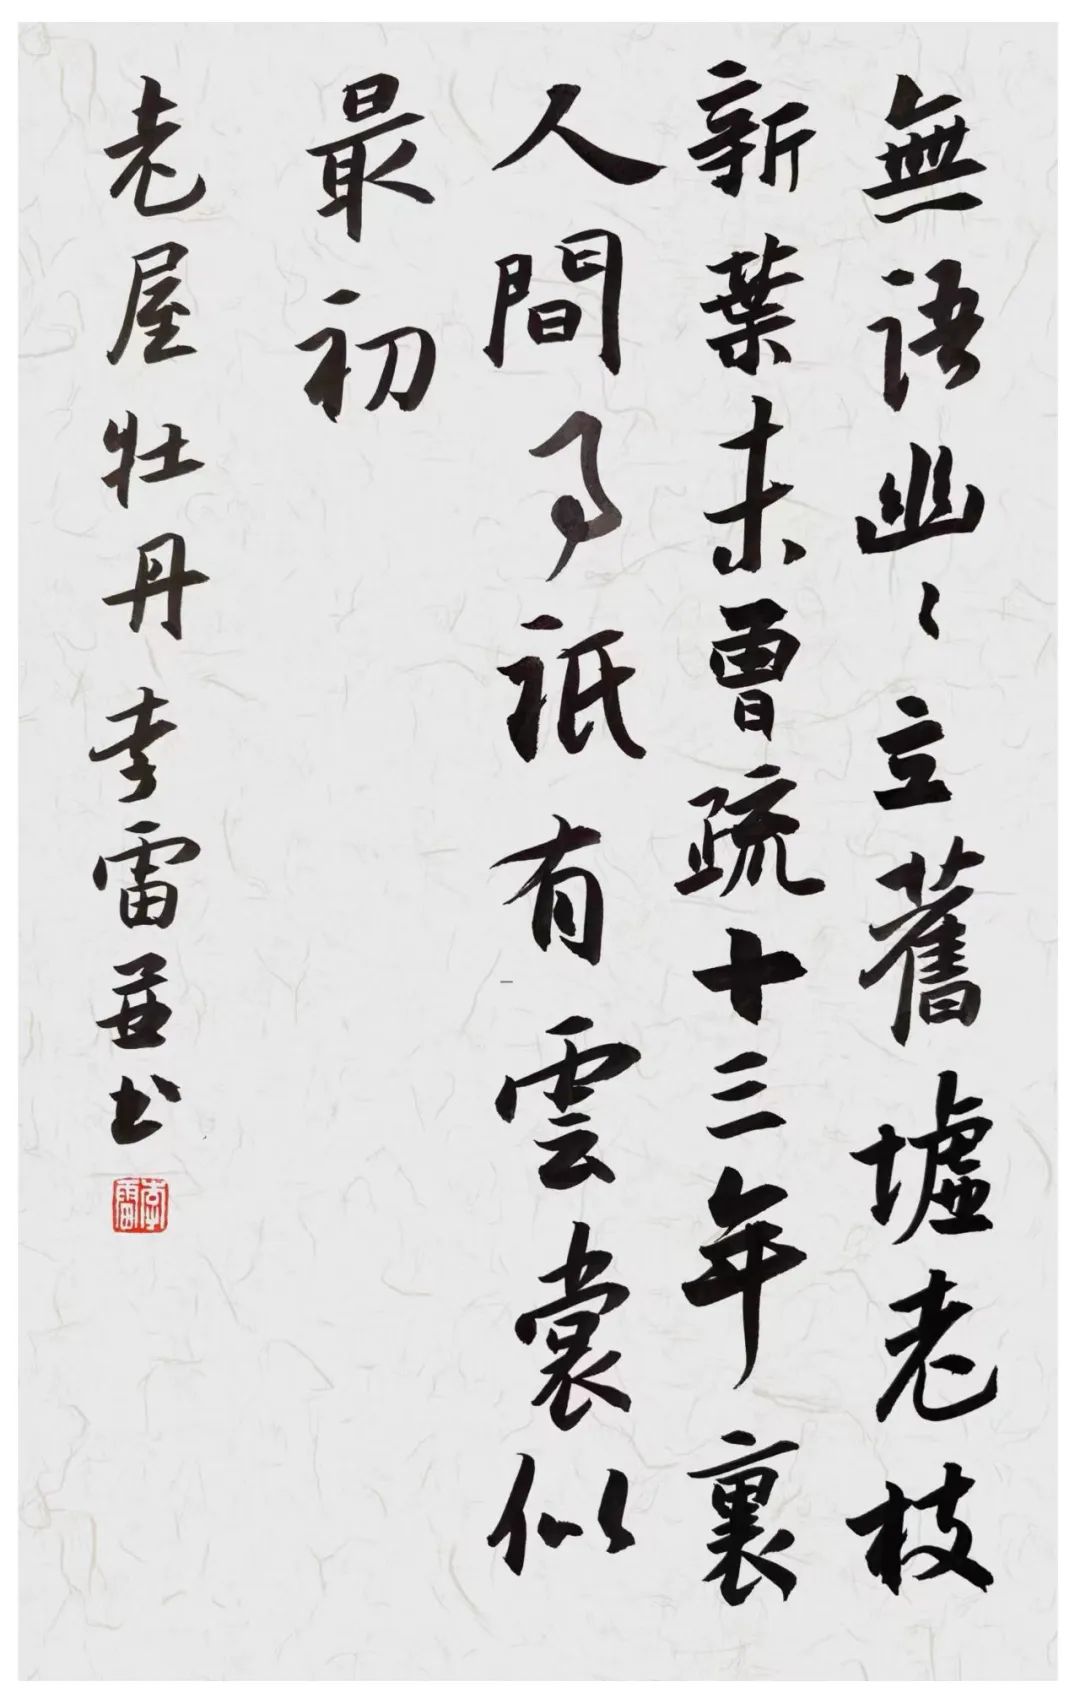 無語幽〻立舊墟老枝
新葉未曾疏十三年裏
人間事祇有雲裳似
最初
老屋牡丹 李雷並书
李雷